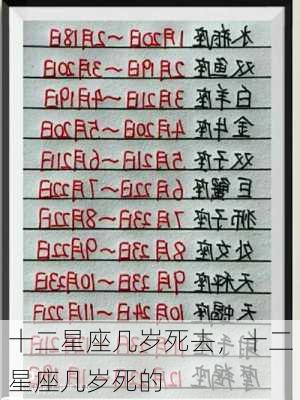 水瓶座 1月20日~2月18日
双鱼座 2月19日~3月20日
白羊座 3月21日~4月19日
金牛座 4月20日~5月20日
双子座 5月21日~6月21日
巨蟹座 6月22日~7月22日
狮子座 7月23日~8月22日
处女座 8月23日~9月22日
天秤座 9月23日~10月23日
天蝎座 10月24日~11月22日
摩羯座
十二星座几岁死去，十二
星座几岁死的